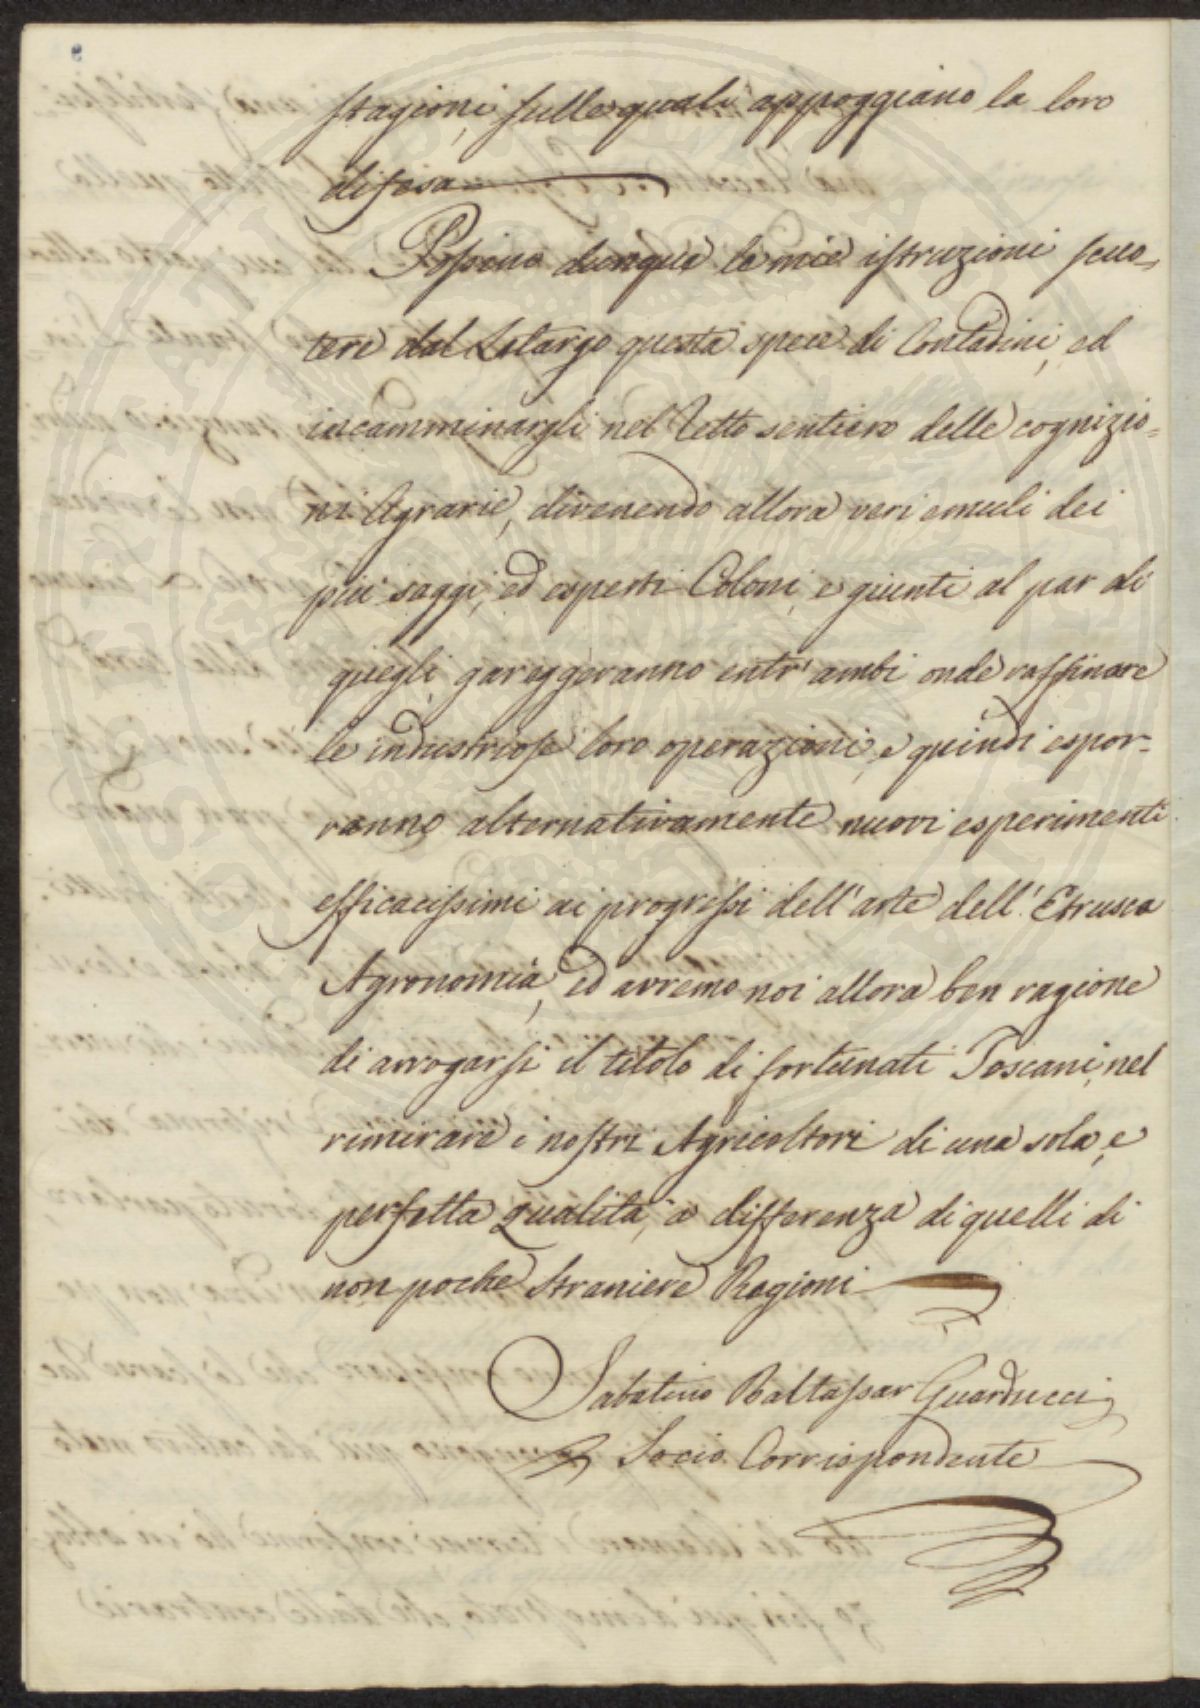 stagioni, sulle quali appoggiano la loro
difesa
Possino dunque le mie istruzioni scuo=
tere dal Letargo questa spece di Contadini, ed
incamminargli nel retto sentiero delle cognizio=
ni Agrarie, divenendo allora veri emuli dei
più saggi, ed esperti Coloni, e giunti al par di
quegli, gareggeranno entr'ambi onde raffinare
le industriose loro operazioni, e quindi espor-
ranno alternativamente nuovi esperimenti
efficacissimi ai progressi dell'arte dell'Etrusca
Agronomia, ed avremo noi allora ben ragione
di arrogarsi il titolo di fortunati Toscani, nel
rimirare i nostri Agricoltori di una sola, e
perfetta Qualità, a differenza di quelli di
non poche Straniere Regioni
Sabatino Baltassar Guarducci
Socio Corrispondente